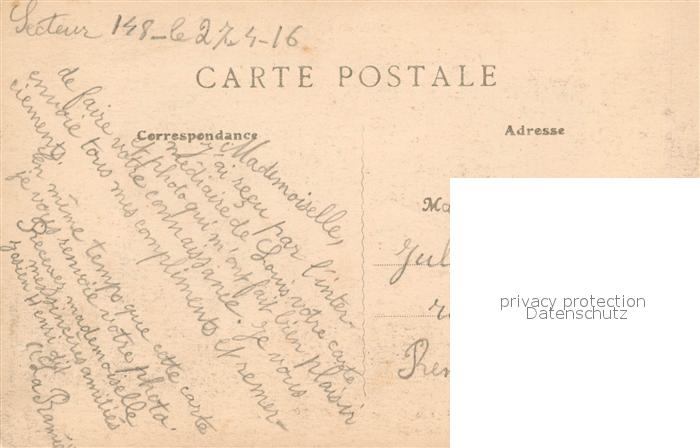 Secteur 148 - le 27-4-16
CARTE POSTALE
Correspondance
Adresse
Mademoiselle,
j'ai reçu par l'inter-
médiaire de Louis votre carte
et photo qui m'ont fait bien plaisir
de faire votre connaissance. Je vous
envoie tous mes compliments et remer-
ciements.
En même temps que cette carte
je vous renvoie votre photo.
Recevez mademoiselle
mes sincères amitiés
Henri dit
La
Ma
Jul
Pren
privacy protection
Datenschutz